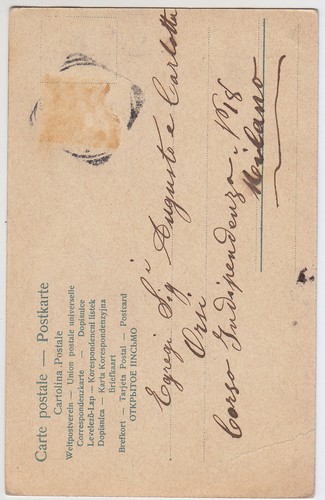 Carte postale — Postkarte
Cartolina Postale
Weltpostverein — Union postale universelle
Correspondenzkarte — Dopisnice
Levelező-Lap — Korespondencní lístek
Dopisnica — Karta Korespondenzyjna
Briefkaart
Brefkort — Tarjeta Postal — Postcard
ОТКРЫТОЕ ПИСЬМО
Egregi Sigi Augusto e Carlotta
Orsi
Corso Indipendenza N 18
Milano